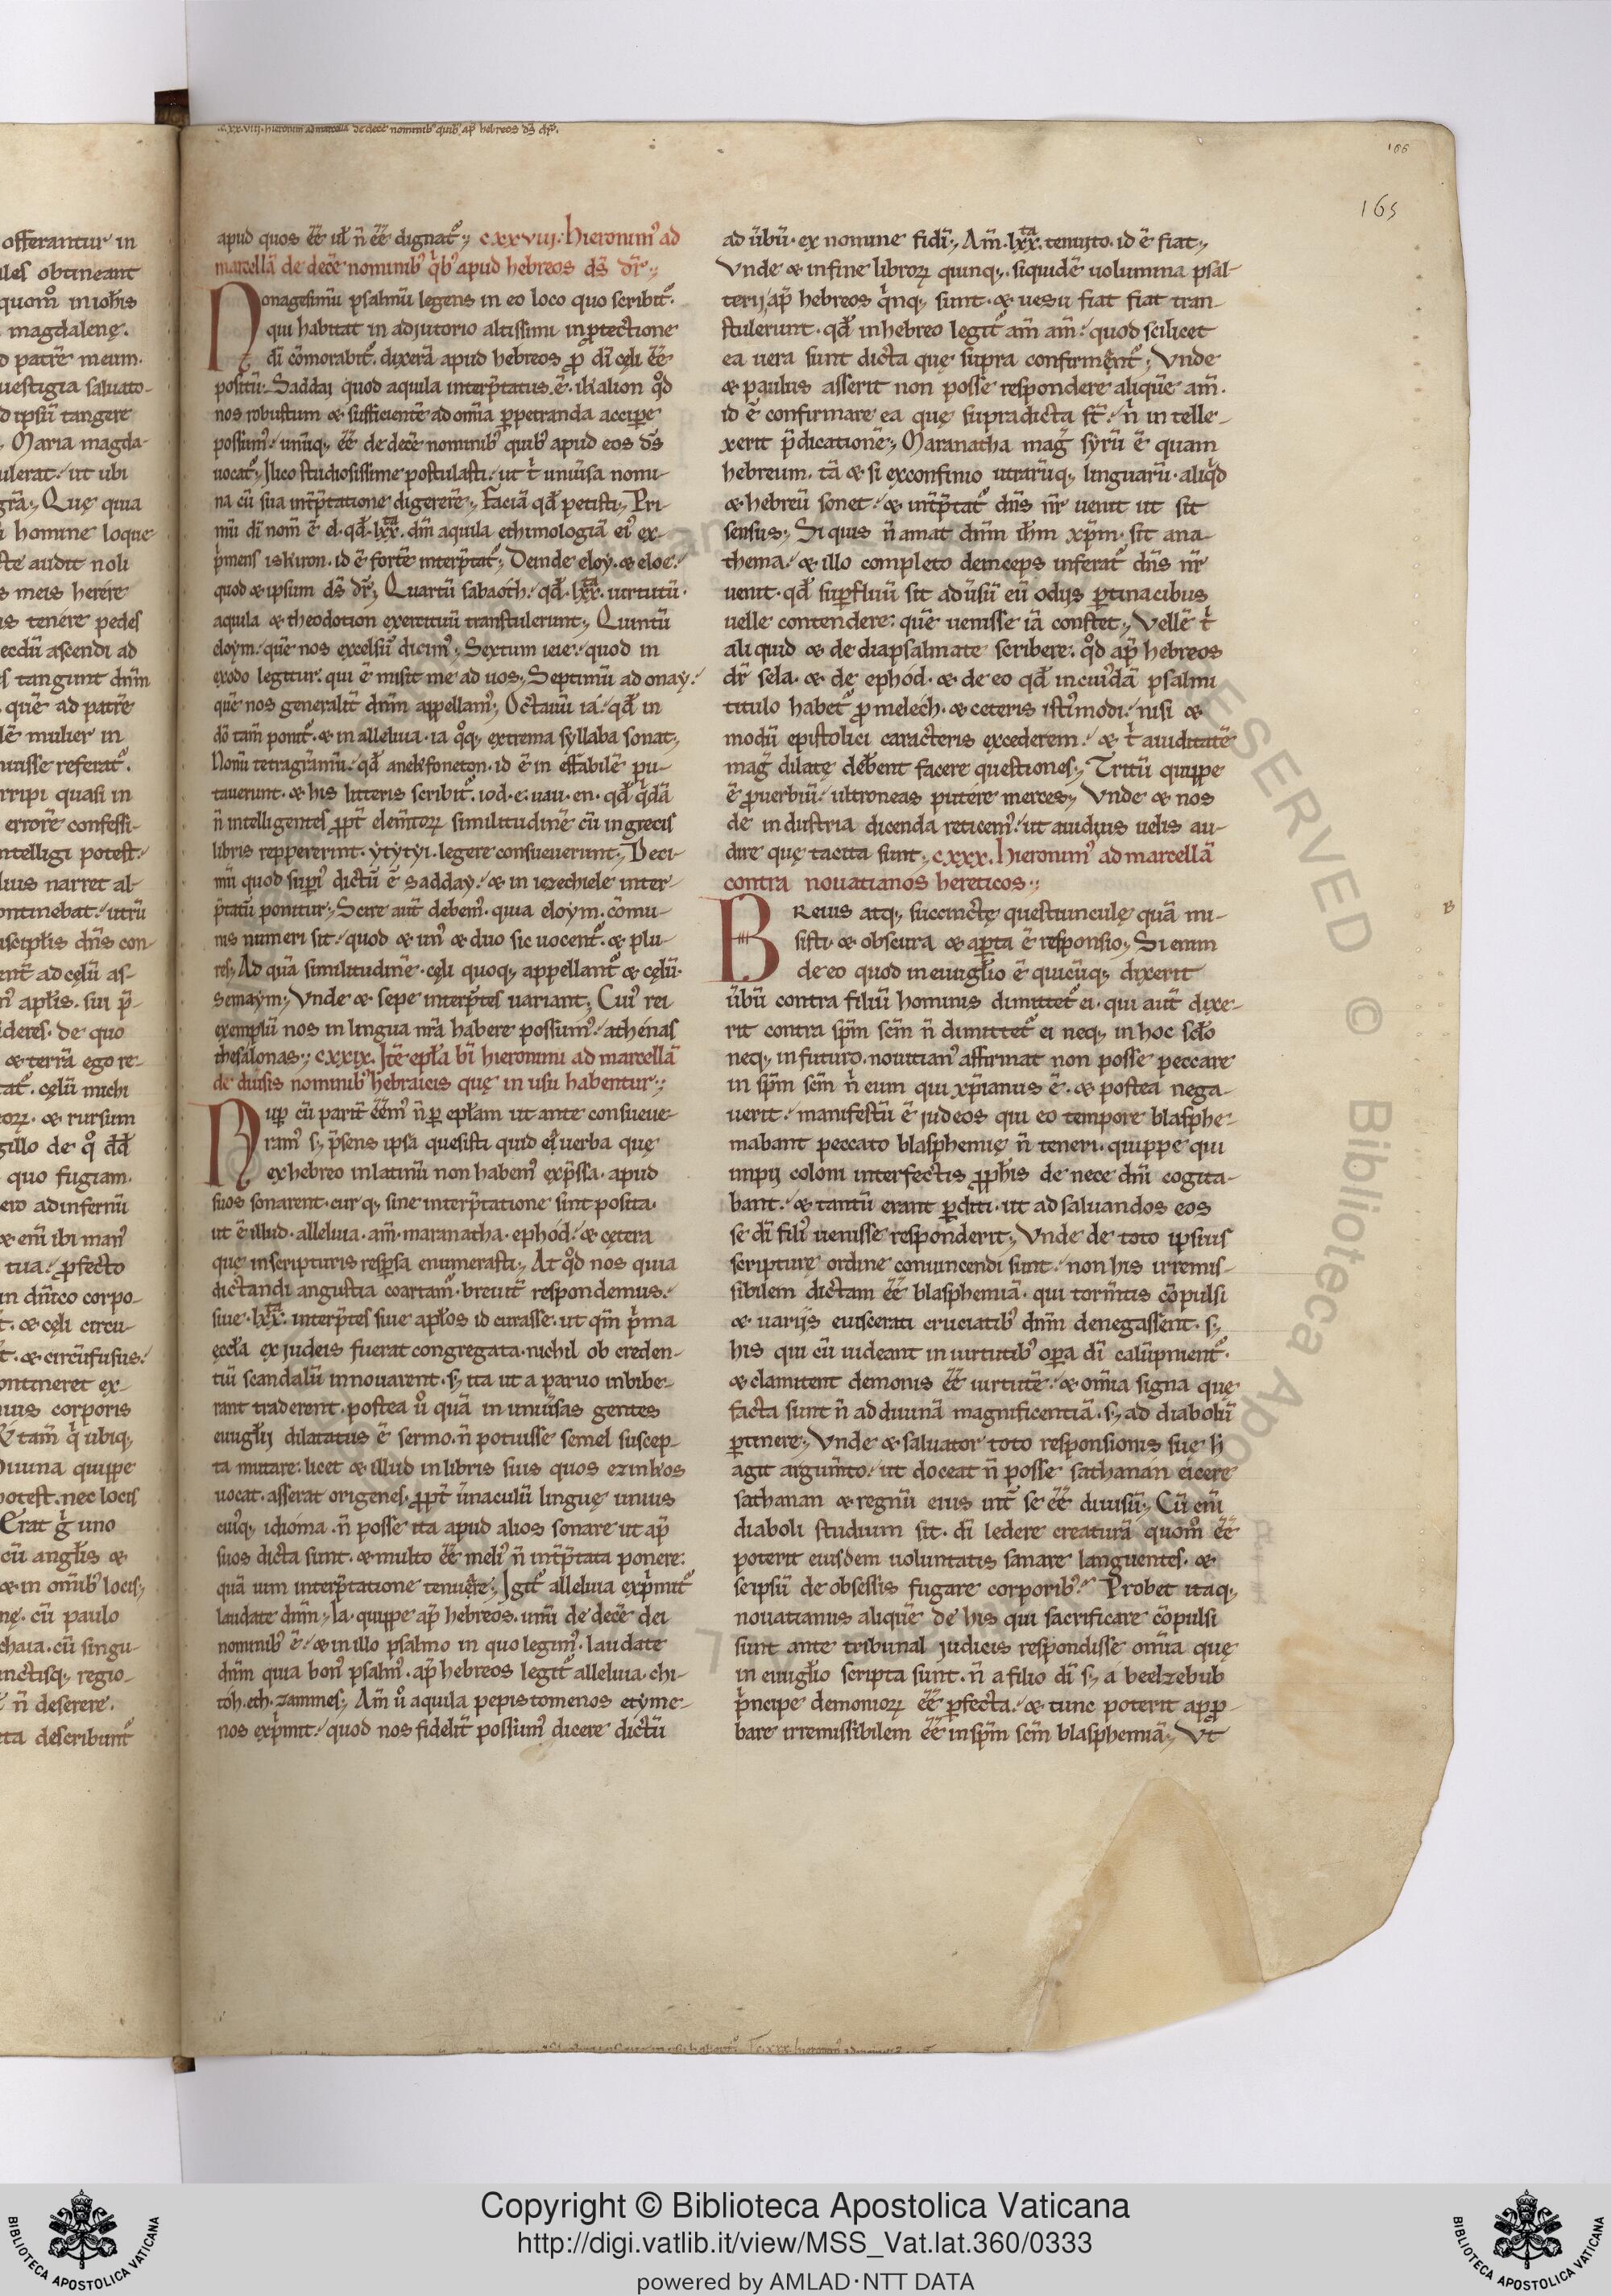 165
apud quos ēē uł n̄ ēē dignat᷑. cxxviij. hieronim᷒ ad
marcellā de decē nominib᷒ qͥb᷒ apud hebreos d̄s dr̄.
Nonagesimū psalmū legens in eo loco quo scribit᷑.
qui habitat in adjutorio altissimi in ꝓtectione
dī cōmorabit᷑. dixerā apud hebreos ꝓ dī cęli ēē
positū. Sadday quod aquila interp̄tatus ē. ikalion qͦd
nos robustum & sufficientē ad om̄ia ꝑpetranda accipe
possum᷒. unūq; ēē de decē nominib᷒ quib᷒ apud eos d̄s
uocat᷑. Ilico studiosissime postulasti. ut tͥ uniūsa nomi-
na cū sua int̄p̄tatione digererē. Faciā qd̄ petisti. Pri-
mū dī nom̄ ē el. qd̄. lxx. dn̄m aquila ethimologiā ei᷒ ex-
pͥmens iskiron. id ē fortē interp̄tat᷑. Deinde eloy. & eloe.
quod & ipsum d̄s dr̄. Quartū sabaóth. qd̄. lxx. uirtutū.
aquila & theodotion exercituū transtulerunt. Quintū
eloym. quē nos excelsū dicim᷒. Sextum ieie. quod in
exodo legitur. qui ē misit me ad uos. Septimū adonay.
quē nos generalit̄ dn̄m appellam᷒. Octauū iá. qd̄ in
dō tam̄ ponit᷑. & in alleluia. ia qͦq; extrema syllaba sonat.
Nonū tetragrāmū. qd̄ anekfoneton. id ē in effabilē pu-
tauerunt. & his litteris scribit᷑. iod. e. uau. en. qd̄ qͥdā
n̄ intelligentes ꝓpt̄ elem̄toꝝ similitudinē cū in grecis
libris reppererint. ẏtẏtẏi. legere consueuerunt. Deci-
mū quod supi᷒ dictū ē sadday. & in iezechiele inter-
p̄tatū ponitur. Scire aut̄ debem᷒. quia eloym. cōmu-
nis numeri sit. quod & un᷒ & duo sic uocent᷑. & plu-
res. Ad quā similitudinē. cęli quoq; appellant᷑ & cęlū.
semaẏm. Vnde & sepe interp̄tes uariant. Cui᷒ rei
exemplū nos in lingua nr̄a habere possum᷒. athénas
thesalonas. cxxix. Itē epła bī hieronimi ad marcellā
de diūsis nominib᷒ hebraicis quę in usu habentur.
Nuꝑ cū parit̄ ēēm᷒ n̄ ꝑ epłam ut ante consueue-
ram᷒ s; p̄sens ipsa quesisti quid ea uerba que
ex hebreo in latinū non habem᷒ exp̄ssa. apud
suos sonarent. cur q; sine interp̄tatione sint posita.
ut ē illud. alleluia. am̄. maranatha. ephód. & cętera
que in scripturis respsa enumerasti. At qͦd nos quia
dictandi angustia coartam᷑. breuit̄ respondemus.
siue. lxx. interp̄tes siue apłos id curasse. ut qm̄ pͥma
ęccła ex judeis fuerat congregata. nichil ob creden-
tiū scandalū innouarent. s; ita ut a paruo inbibe-
rant traderent. postea uͦ quā in uniūsas gentes
euuglīj dilatatus ē sermo. n̄ potuisse semel suscep-
ta mutare. licet & illud in libris suis quos ezinkos
uocat. asserat origenes. ꝓpt̄ ūnaculū linguę unius
cui᷒q; idióma. n̄ posse ita apud alios sonare ut ap̄
suos dicta sunt. & multo ēē meli᷒ n̄ int̄p̄tata ponere.
quā uim interp̄tatione tenuere. Igit᷑ alleluia expͥmit᷑
laudate dn̄m. Ia. quippe ap̄ hebreos. unū de decē dei
nominib᷒ ē. & in illo psalmo in quo legim᷒. laudate
dn̄m quia bon᷒ psalm᷒. ap̄ hebreos legit᷑ alleluia. chi-
tób. eth. zammes. Am̄ uͦ aquila pepistomenos etyme-
nos expͥmit. quod nos fidelit̄ possum᷒ dicere dictū
ad ūbū. ex nomine fidī. Am̄. lxx. tenuito. id ē fiat.
Vnde & in fine libroꝝ quinq;. siquidē uolumina psal-
terij ap̄ hebreos qͥnq; sunt. & uesū fiat fiat tran-
stulerunt. qd̄ in hebreo legit᷑ am̄ am̄. quod scilicet
ea uera sunt dicta quę supra confirment᷑. Vnde
& paulus asserit non posse respondere aliquē am̄.
id ē confirmare ea quę supradicta st̄. nͥ in telle-
xerit p̄dicationē. Maranatha mag̃ syrū ē quam
hebreum. tā & si ex confinio utrarūq; linguarū. aliqͥd
& hebreū sonet. & int̄p̄tat᷑ dn̄s nr̄ uenit ut sit
sensus. Si quis n̄ amat dn̄m ih̄m xp̄m. sit ana-
thema. & illo completo deinceps inferat᷑ dn̄s nr̄
uenit. qd̄ suꝑfluū sit aduūsū eū odijs ꝑtinacibus
uelle contendere. quē uenisse iā constet. Vellē tͥ
aliquid & de diapsalmate scribere. qͦd ap̄ hebreos
dr̄ sela. & dę ephód. & de eo qd̄ in cui᷒dā psalmi
titulo habet᷑ ꝓ melech. & ceteris isti᷒modi. nisi &
modū epistolici caracteris excederem. & tͥ auiditatē
mag̃ dilatę debent facere questiones. Tritū quippe
ē ꝓuerbiū. ultroneas putére merces. Vnde & nos
de industria dicenda reticem᷒. ut auidius uelis au-
dire quę tacita sunt. cxxx. hieronim᷒ ad marcellā
contra nouatianos hereticos.
BReuis atq; succinctę questiunculę quā mi-
sisti & obscura & aꝑta ē responsio. Si enim
de eo quod in euuglīo ē quicūq; dixerit
ūbū contra filiū hominis dimittet᷑ ei. qui aut̄ dixe-
rit contra sp̄m scm̄ n̄ dimittet᷑ ei neq; in hoc scło
neq; in futuro. nouitian᷒ affirmat non posse peccare
in sp̄m scm̄ nͥ eum qui xp̄ianus ē. & postea nega-
uerit. manifestū ē judeos qui eo tempore blasphe-
mabant peccato blasphemię n̄ teneri. quippe qui
impij coloni interfectis ꝓphis de nece dn̄i cogita-
bant. & tantū erant ꝑditi. ut ad saluandos eos
se dī fili᷒ uenisse responderit. Vnde de toto ipsius
scripturę ordine conuincendi sunt. non his irremis-
sibilem dictam ēē blasphemiā. qui torm̄tis cōpulsi
& uarijs euiscerati cruciatib᷒ dn̄m denegassent. s;
his qui cū uideant in uirtutib᷒ oꝑa dī calūpnient᷑.
& clamitent demonis ēē uirtutē. & om̄ia signa quę
facta sunt n̄ ad diuinā magnificentiā. s; ad diabolū
ꝑtinere. Vnde & saluator toto responsionis suę h̄
agit argum̄to. ut doceat n̄ posse sathanán eicere
sathanan & regnū eius int̄ se ēē diuisū. Cū enī
diaboli studium sit. dī ledere creaturā quom̊ ēē
poterit eiusdem uoluntatis sanare languentes. &
seipsū de obsessis fugare corporib᷒. Probet itaq;
nouatianus aliquē de his qui sacrificare cōpulsi
sunt ante tribunal judicis respondisse om̄ia quę
in euuglīo scripta sunt. n̄ a filio dī s; á beelzebub
pͥncipe demonioꝝ ēē ꝑfecta. & tunc poterit app̄-
bare irremissibilem ēē in sp̄m scm̄ blasphemiā. Vt
B
Copyright © Biblioteca Apostolica Vaticana
http://digi.vatlib.it/view/MSS_Vat.lat.360/0333
powered by AMLAD·NTT DATA
BIBLIOTECA APOSTOLICA VATICANA
BIBLIOTECA APOSTOLICA VATICANA